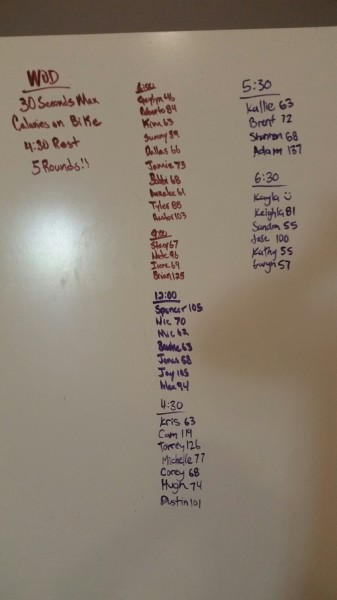 WOD
30 Seconds Max
Calories on Bike
4:30 Rest
5 Rounds!!
6:00
Roberto 84
Kim 63
Sunny 59
Dallas 66
Jamie 73
Bobbi 68
61
Tyler 88
103
9:00
Stacy 67
Nate 96
Irene 64
Brian 125
12:00
Spencer 105
Nic 70
62
63
Jonas 58
Jay 105
Alex 94
4:30
Kris 63
Cam 119
Torrey 126
Michelle 77
Corey 68
Hugh 74
Dustin 101
5:30
Kallie 63
Brent 72
Shannon 68
Adam 137
6:30
Kayla
Keighla 81
Sandra 55
Jose 100
Kathy 55
Gwyn 57